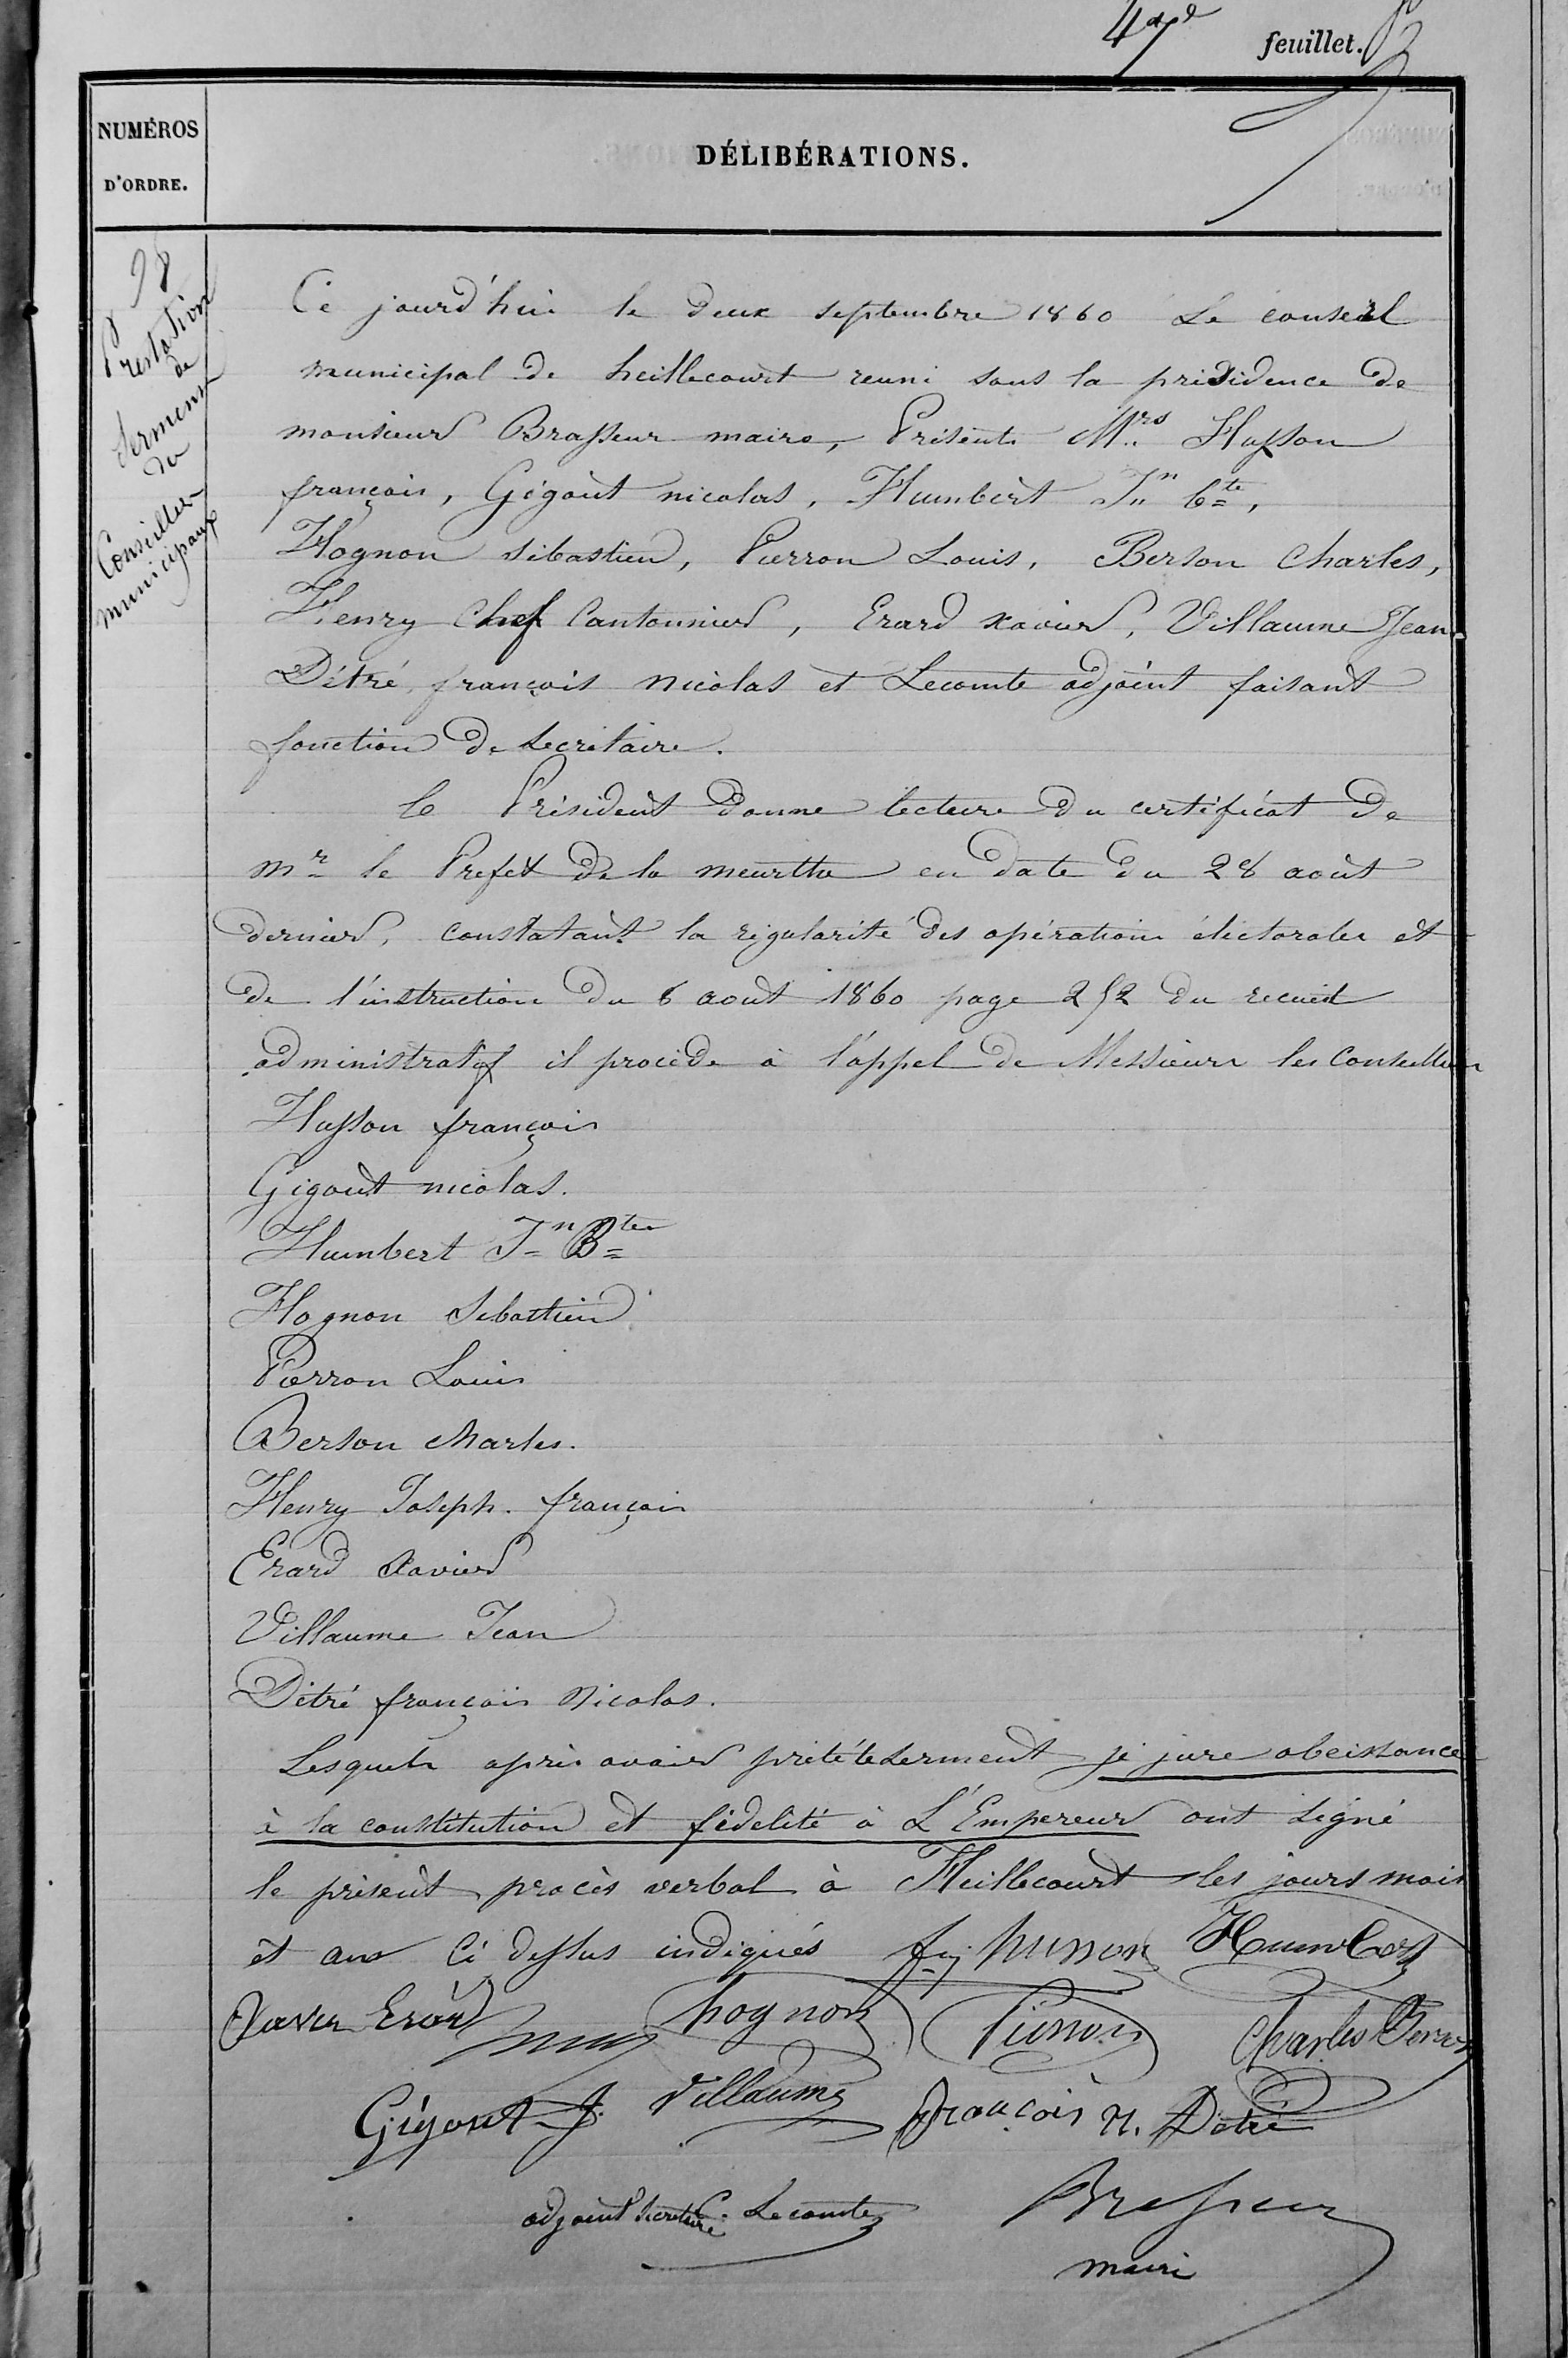 47e feuillet.
NUMÉROS
D'ORDRE.
DÉLIBÉRATIONS.
98
Prestation
de
Serment
du
Conseiller
municipaux
Ce jourd'hui le deux septembre 1860 Le conseil
municipal de heillecourt reuni sous la présidence de
monsieur Brasseur maire, Présents Mrs Husson
françois, Gégout nicolas, Humbert Jn bte,
Hognon sébastien, Pierron Louis, Berson Charles,
Henry Chef Cantonnier, Erard xavier, Villaume Jean
Détré françois nicolas et Lecomte adjoint faisant
fonction de secrétaire.
le Président donne lecture du certificat de
mr le Prefet de la meurthe en date du 28 août
dernier, constatant la régularité des opérations électorales et
de l'instruction du 6 aout 1860 page 252 du recueil
administratif il procède à l'appel de Messieurs les Conseillers
Husson françois
Gigout nicolas.
Humbert Jn Bte
Hognon Sebastien
Pierron Louis
Berson Charles.
Henry Joseph. françois
Erard Xavier
Villaume Jean
Détré françois Nicolas.
Lesquels après avoir prété le serment je jure obeissance
à la constitution et fidélité à L'Empereur ont signé
le présent procès verbal à Heillecourt les jours mois
et an ci dessus indiqués husson Humbert
Xavier Erard hognon Pierron Charles Berson
Gégout J. Villaume françois N. Détré
adjoint secrétaire C. Lecomte Brasseur
maire